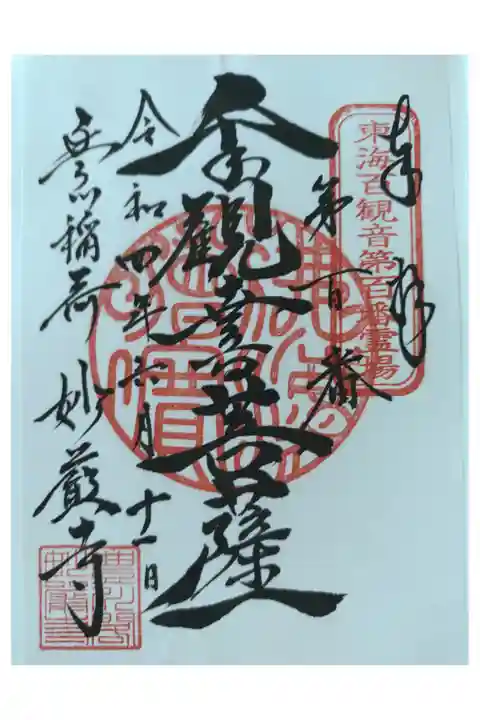 奉拝
東海百観音第百番霊場
第百番
観音菩薩
令和四年六月十一日
豊川稲荷 妙厳寺
豊川閣
妙嚴寺